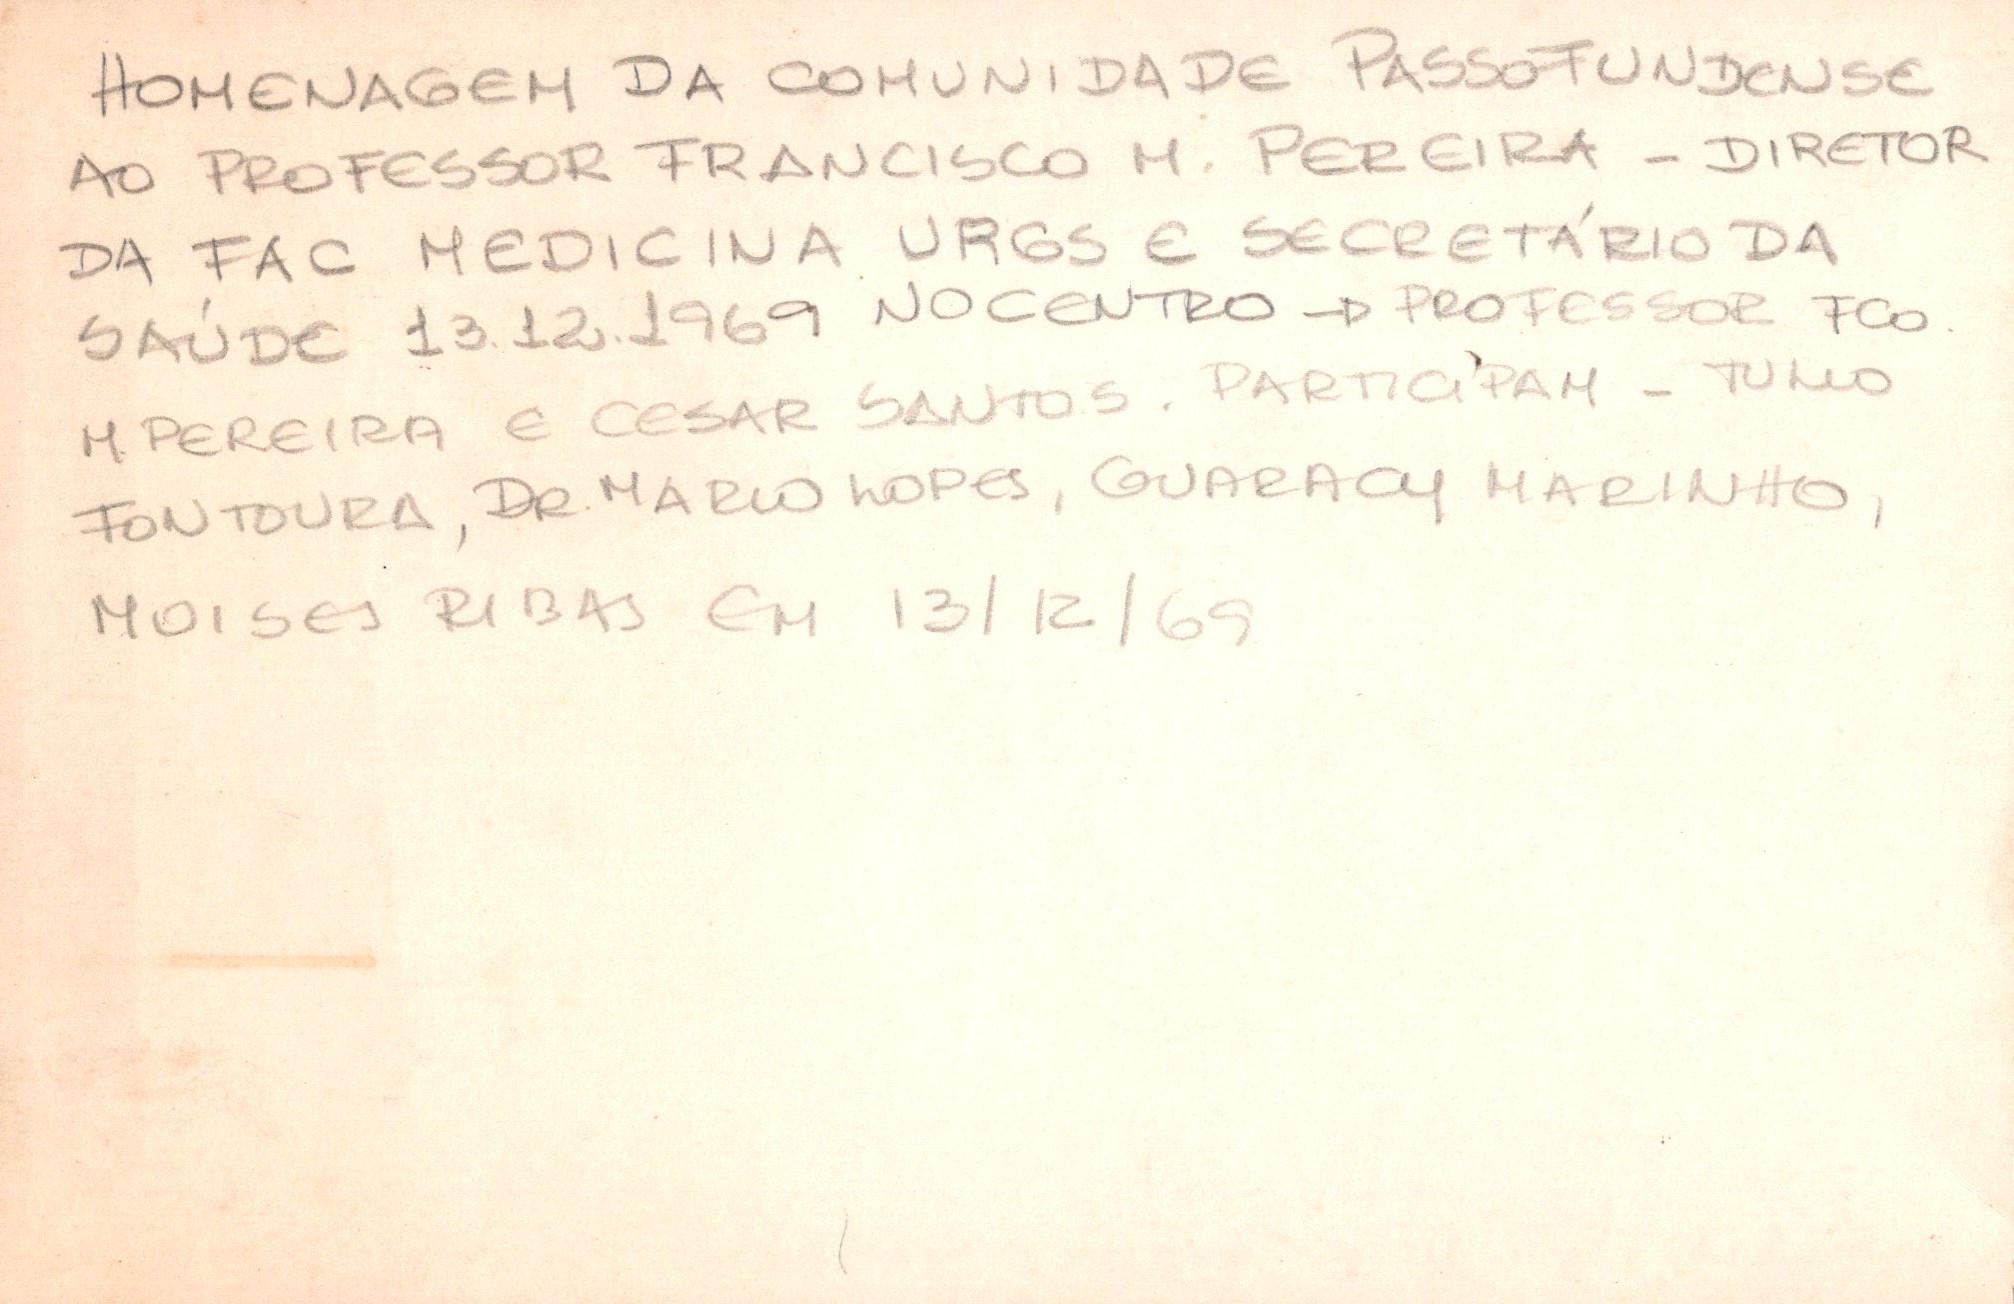 HOMENAGEM DA COMUNIDADE PASSOFUNDENSE
AO PROFESSOR FRANCISCO M. PEREIRA - DIRETOR
DA FAC MEDICINA URGS E SECRETÁRIO DA
SAÚDE 13.12.1969 NO CENTRO → PROFESSOR FCO.
M PEREIRA E CESAR SANTOS. PARTICIPAM - TULIO
FONTOURA, DR. MARIO LOPES, GUARACY MARINHO,
MOISES RIBAS EM 13/12/69